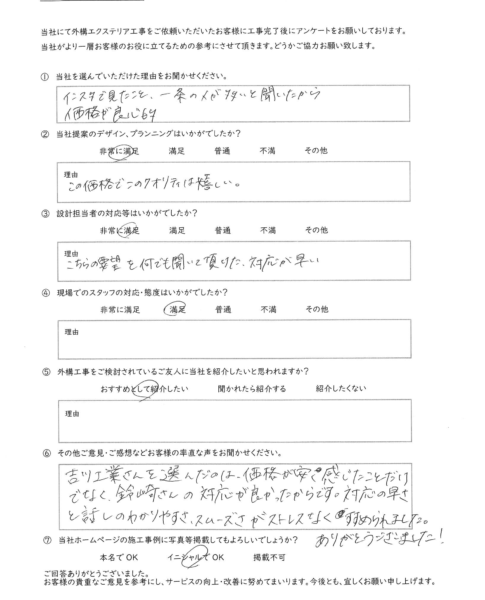 当社にて外構エクステリア工事をご依頼いただいたお客様に工事完了後にアンケートをお願いしております。
当社がより一層お客様のお役に立てるための参考にさせて頂きます。どうかご協力お願い致します。
① 当社を選んでいただけた理由をお聞かせください。
インスタで見たこと、一条の人が多いと聞いたから
価格が良心的
② 当社提案のデザイン、プランニングはいかがでしたか?
非常に満足 満足 普通 不満 その他
理由
この価格でこのクオリティは嬉しい。
③ 設計担当者の対応等はいかがでしたか?
非常に満足 満足 普通 不満 その他
理由
こちらの要望を何でも聞いて頂けた、対応が早い
④ 現場でのスタッフの対応・態度はいかがでしたか?
非常に満足 満足 普通 不満 その他
理由
⑤ 外構工事をご検討されているご友人に当社を紹介したいと思われますか?
おすすめとして紹介したい 聞かれたら紹介する 紹介したくない
理由
⑥ その他ご意見・ご感想などお客様の率直な声をお聞かせください。
さんを選んだのは、価格が安く感じたことだけ
でなく、鈴崎さんの対応が良かったからです。対応の早さ
と話しのわかりやすさ、スムーズさがストレスなく進められました。
ありがとうございました!
⑦ 当社ホームページの施工事例に写真等掲載してもよろしいでしょうか?
本名でOK イニシャルでOK 掲載不可
ご回答ありがとうございました。
お客様の貴重なご意見を参考にし、サービスの向上・改善に努めてまいります。今後とも、宜しくお願い申し上げます。